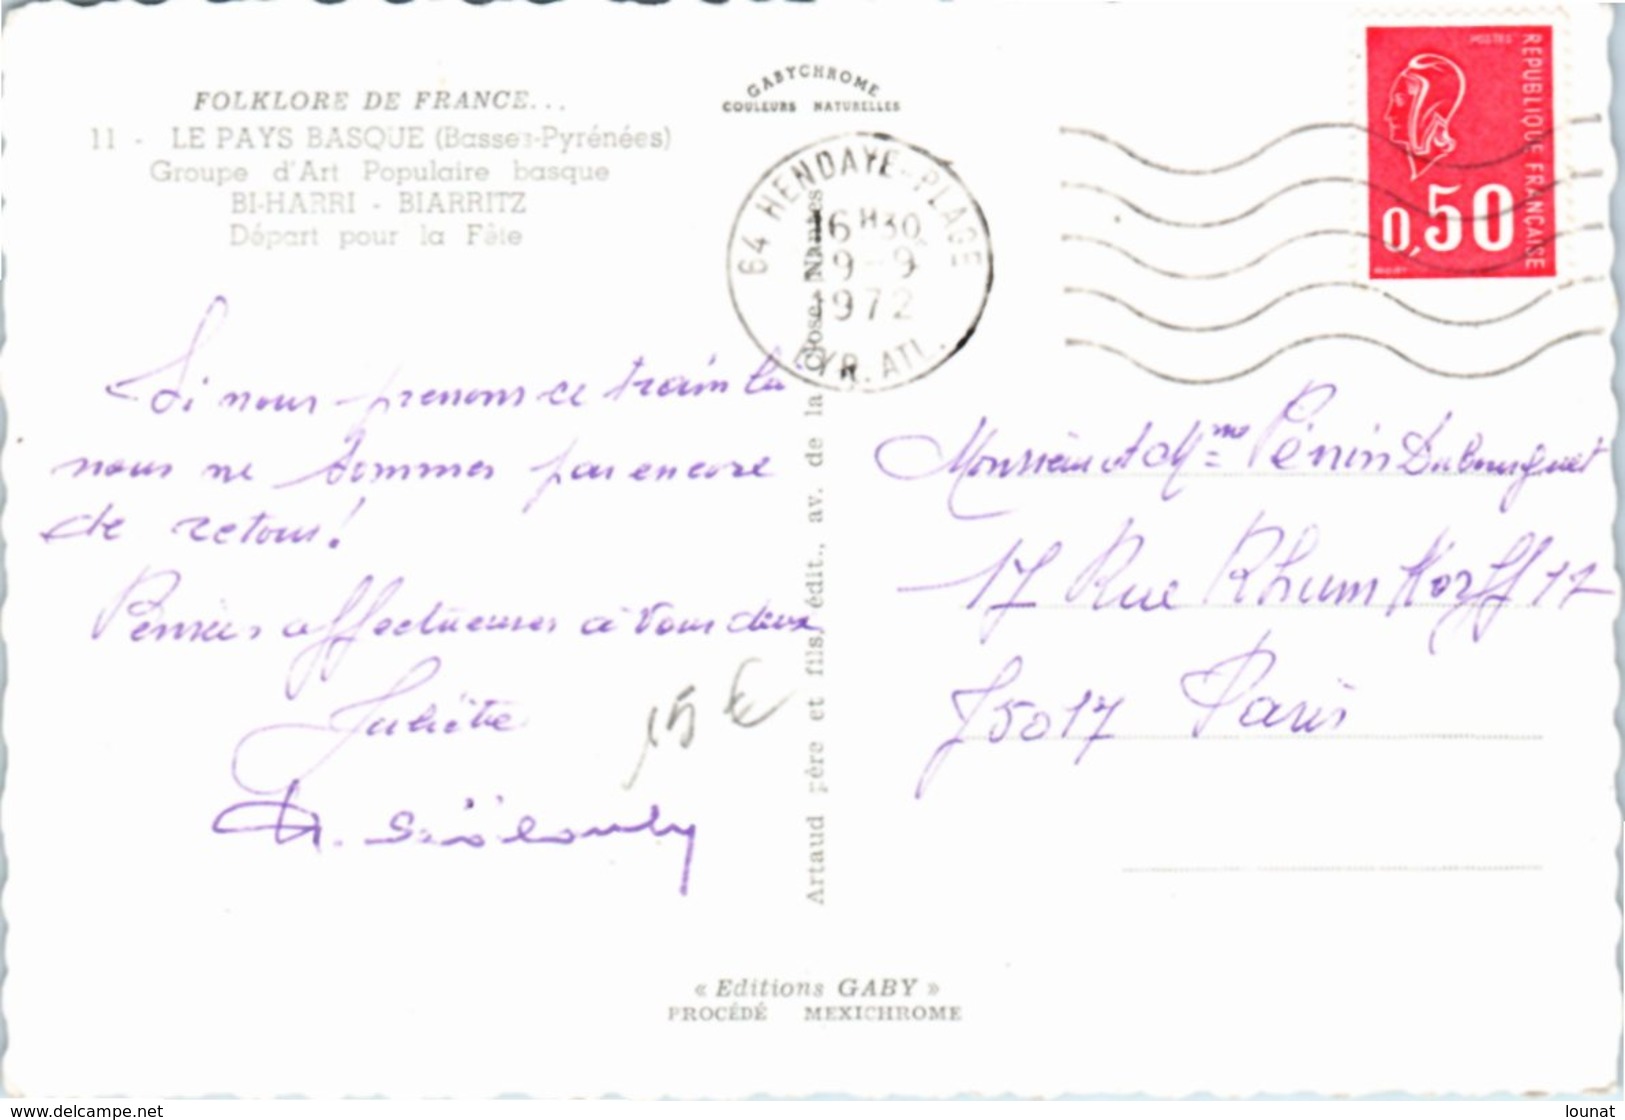 FOLKLORE DE FRANCE...
11 - LE PAYS BASQUE (Basses-Pyrénées)
Groupe d'Art Populaire basque
BI-HARRI - BIARRITZ
Départ pour la Fête
GABYCHROME
COULEURS NATURELLES
64 HENDAYE-PLAGE
16H30
9-9
1972
PYR. ATL.
POSTES
REPUBLIQUE FRANÇAISE
0,50
Si nous prenons ce train là
nous ne sommes pas encore
de retour!
Pensées affectueuses à vous deux
Juliette
15 €
Artaud père et fils, édit., av. de la Close, Nantes
Monsieur et Mme
17 Rue Rhumkorff 17
75017 Paris
« Editions GABY »
PROCÉDÉ MEXICHROME
www.delcampe.net
lounat